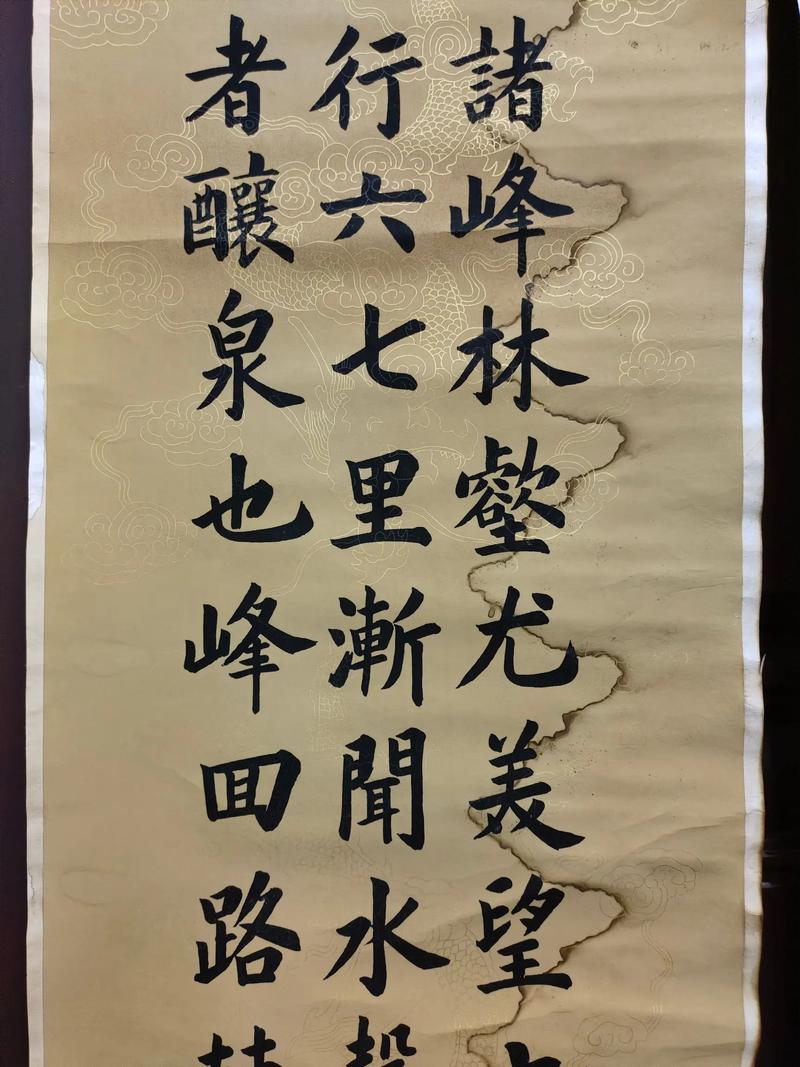 諸峰林壑尤美望
行六七里漸聞水
者釀泉也峰回路